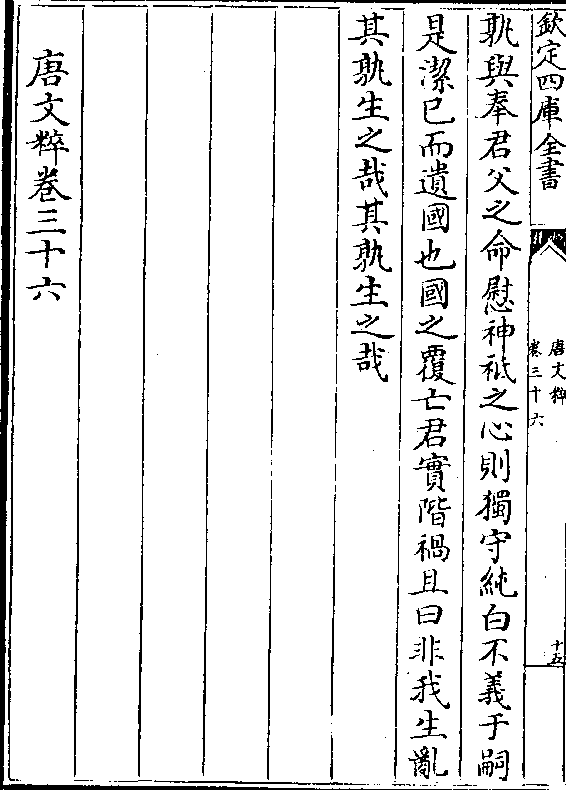 欽定四庫全書
唐文粹
卷三十六
十五
孰與奉君父之命慰神祗之心則獨守純白不義于嗣
是潔已而遺國也國之覆亡君實階禍且曰非我生亂
其孰生之哉其孰生之哉
唐文粹卷三十六